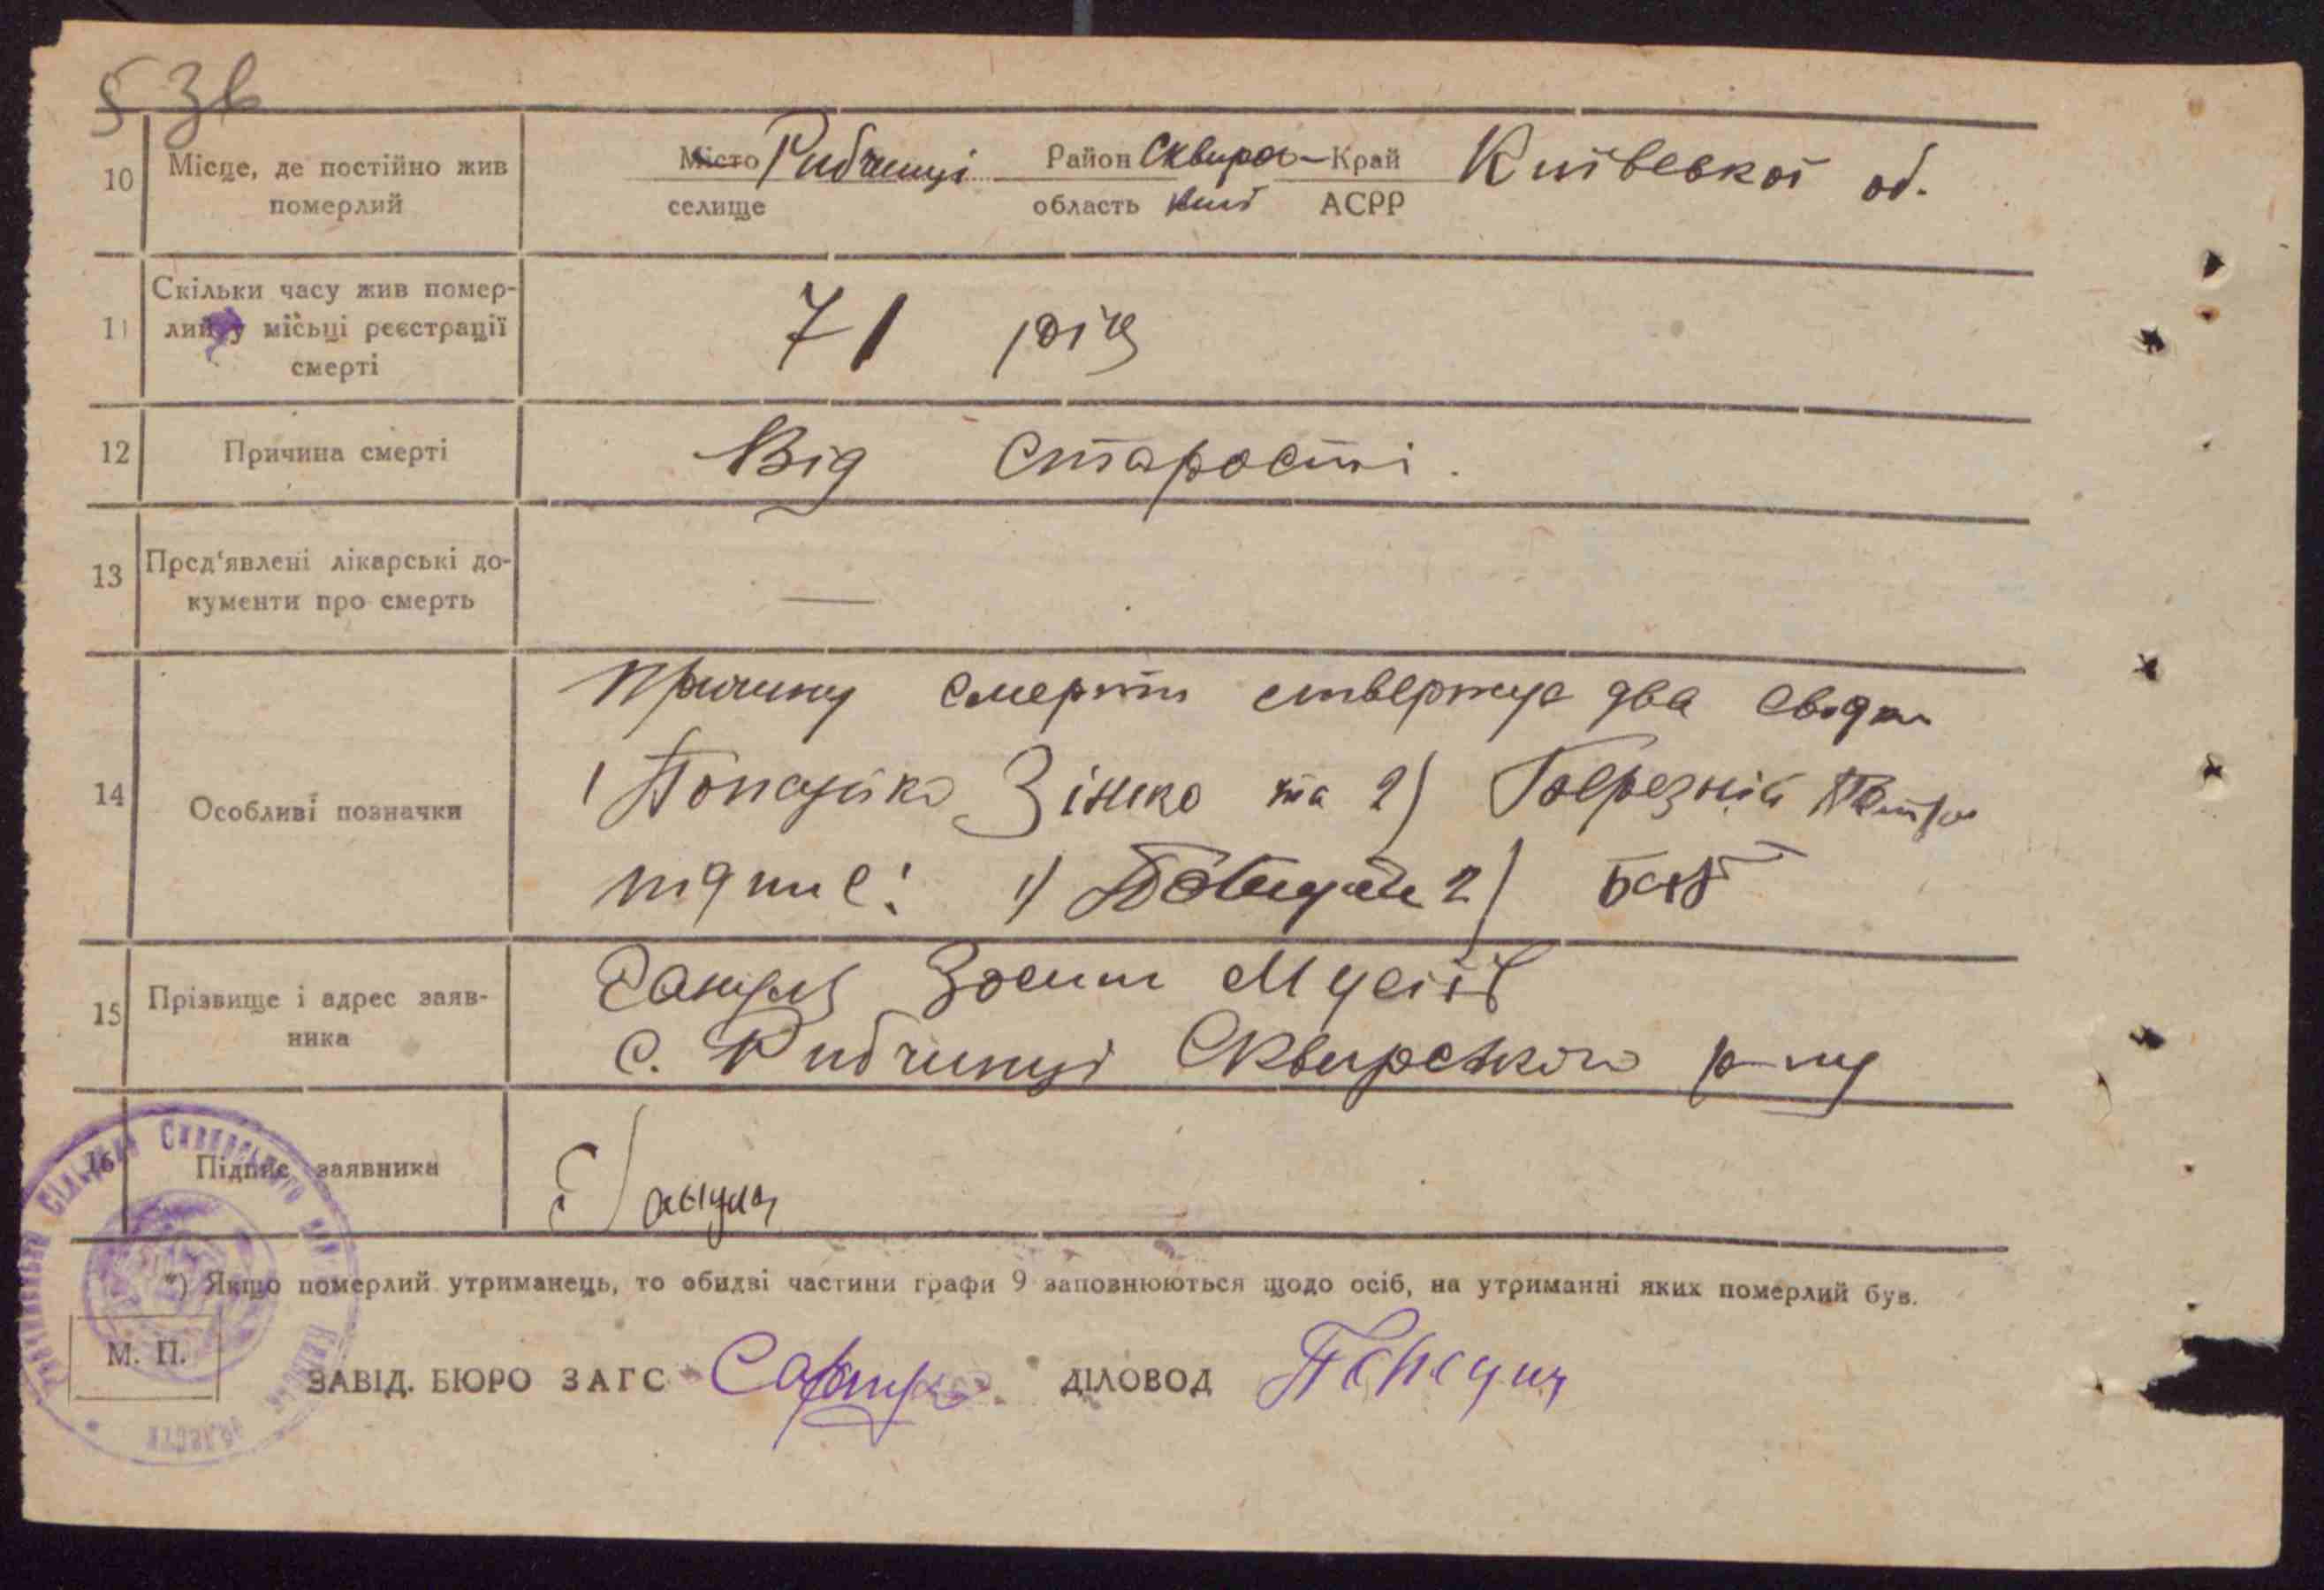 53в
10 Місце, де постійно жив померлий
Місто Рибчинці Район Сквира Край Київської об.
селище область Киів АСРР
11 Скільки часу жив померлий у місьці реєстрації смерті
71 рік
12 Причина смерті
Від старості.
13 Пред'явлені лікарські документи про смерть
—
14 Особливі позначки
Причину смерти ствертує два свідки
1) Зінько та 2) Петро
підпис: 1) 2)
15 Прізвище і адрес заявника
Зосим Мусіїв
с. Рибчинці Сквирського р-ну
16 Підпис заявника
*) Якщо померлий утриманець, то обидві частини графи 9 заповнюються щодо осіб, на утриманні яких померлий був.
М. П.
ЗАВІД. БЮРО ЗАГС ДІЛОВОД